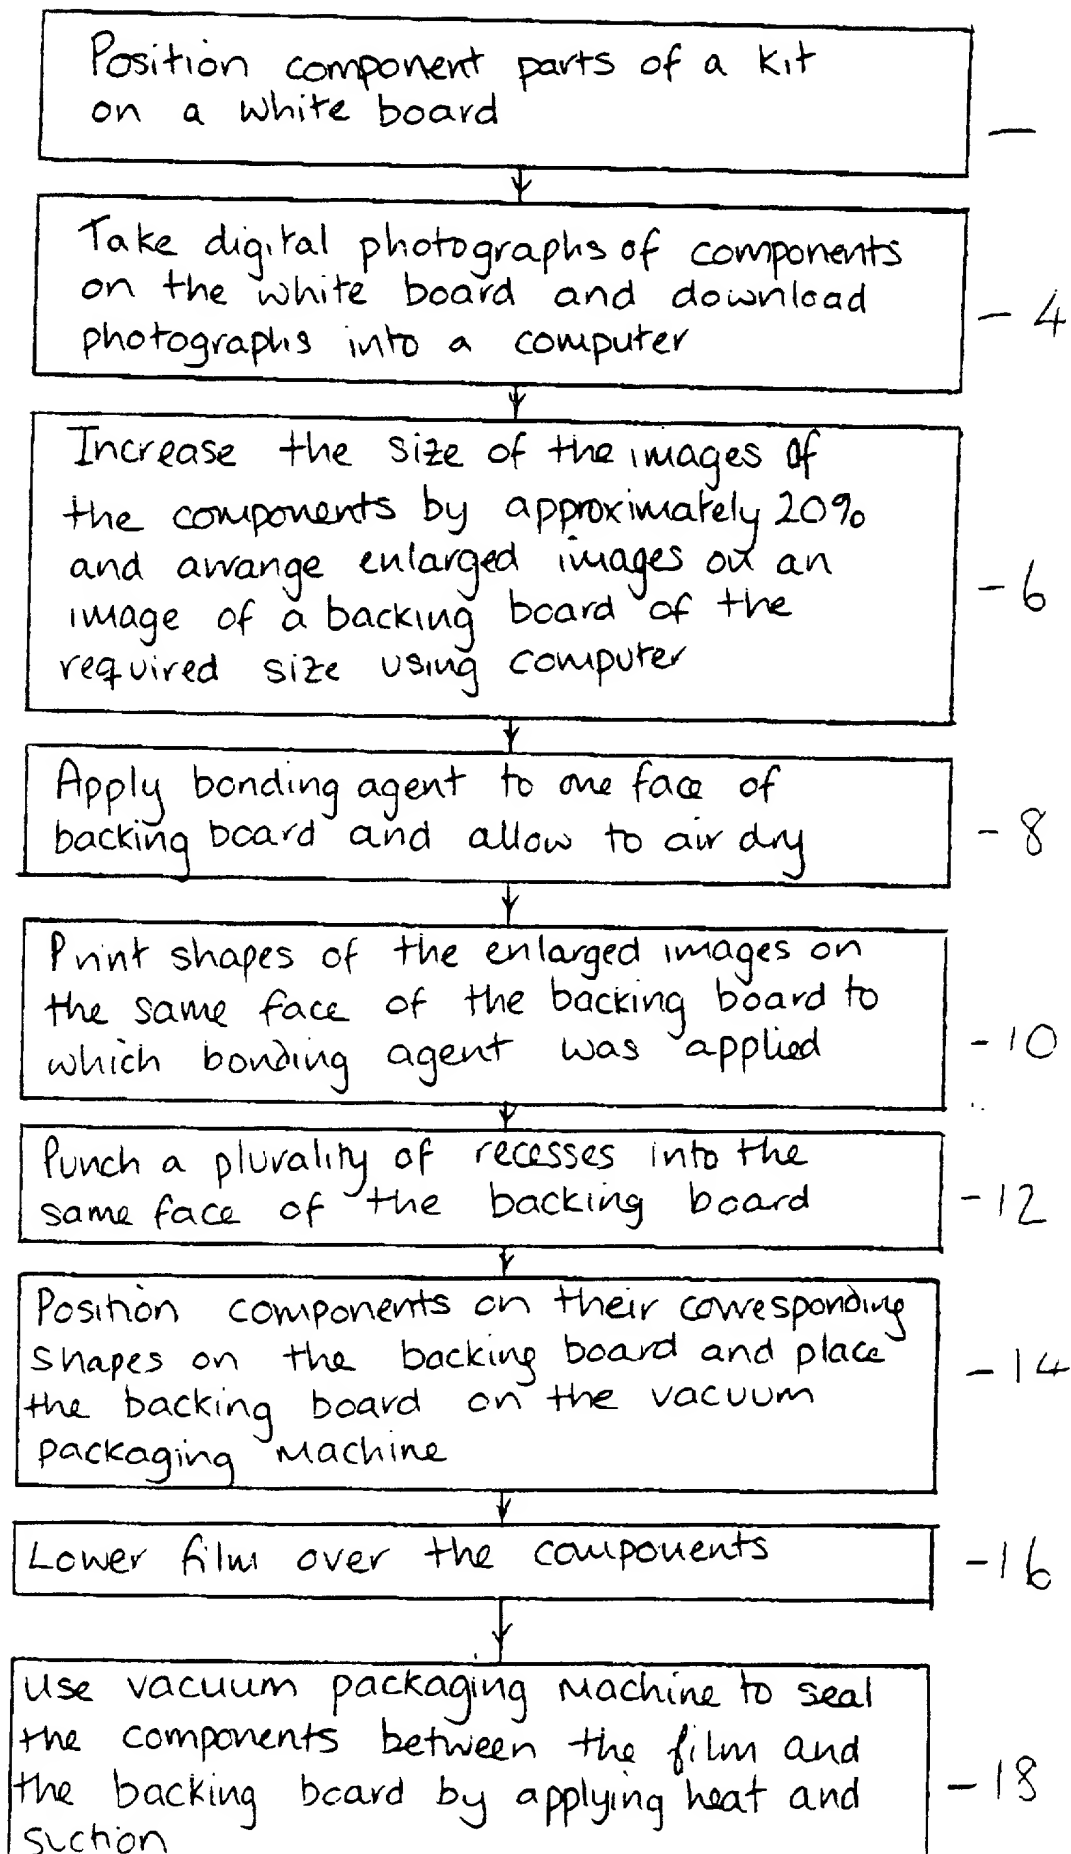 Position component parts of a kit
on a white board
—
Take digital photographs of components
on the white board and download
photographs into a computer
- 4
Increase the size of the images of
the components by approximately 20%
and arrange enlarged images on an
image of a backing board of the
required size using computer
- 6
Apply bonding agent to one face of
backing board and allow to air dry
- 8
Print shapes of the enlarged images on
the same face of the backing board to
which bonding agent was applied
- 10
Punch a plurality of recesses into the
same face of the backing board
- 12
Position components on their corresponding
shapes on the backing board and place
the backing board on the vacuum
packaging machine
- 14
Lower film over the components
- 16
Use vacuum packaging machine to seal
the components between the film and
the backing board by applying heat and
suction
- 18